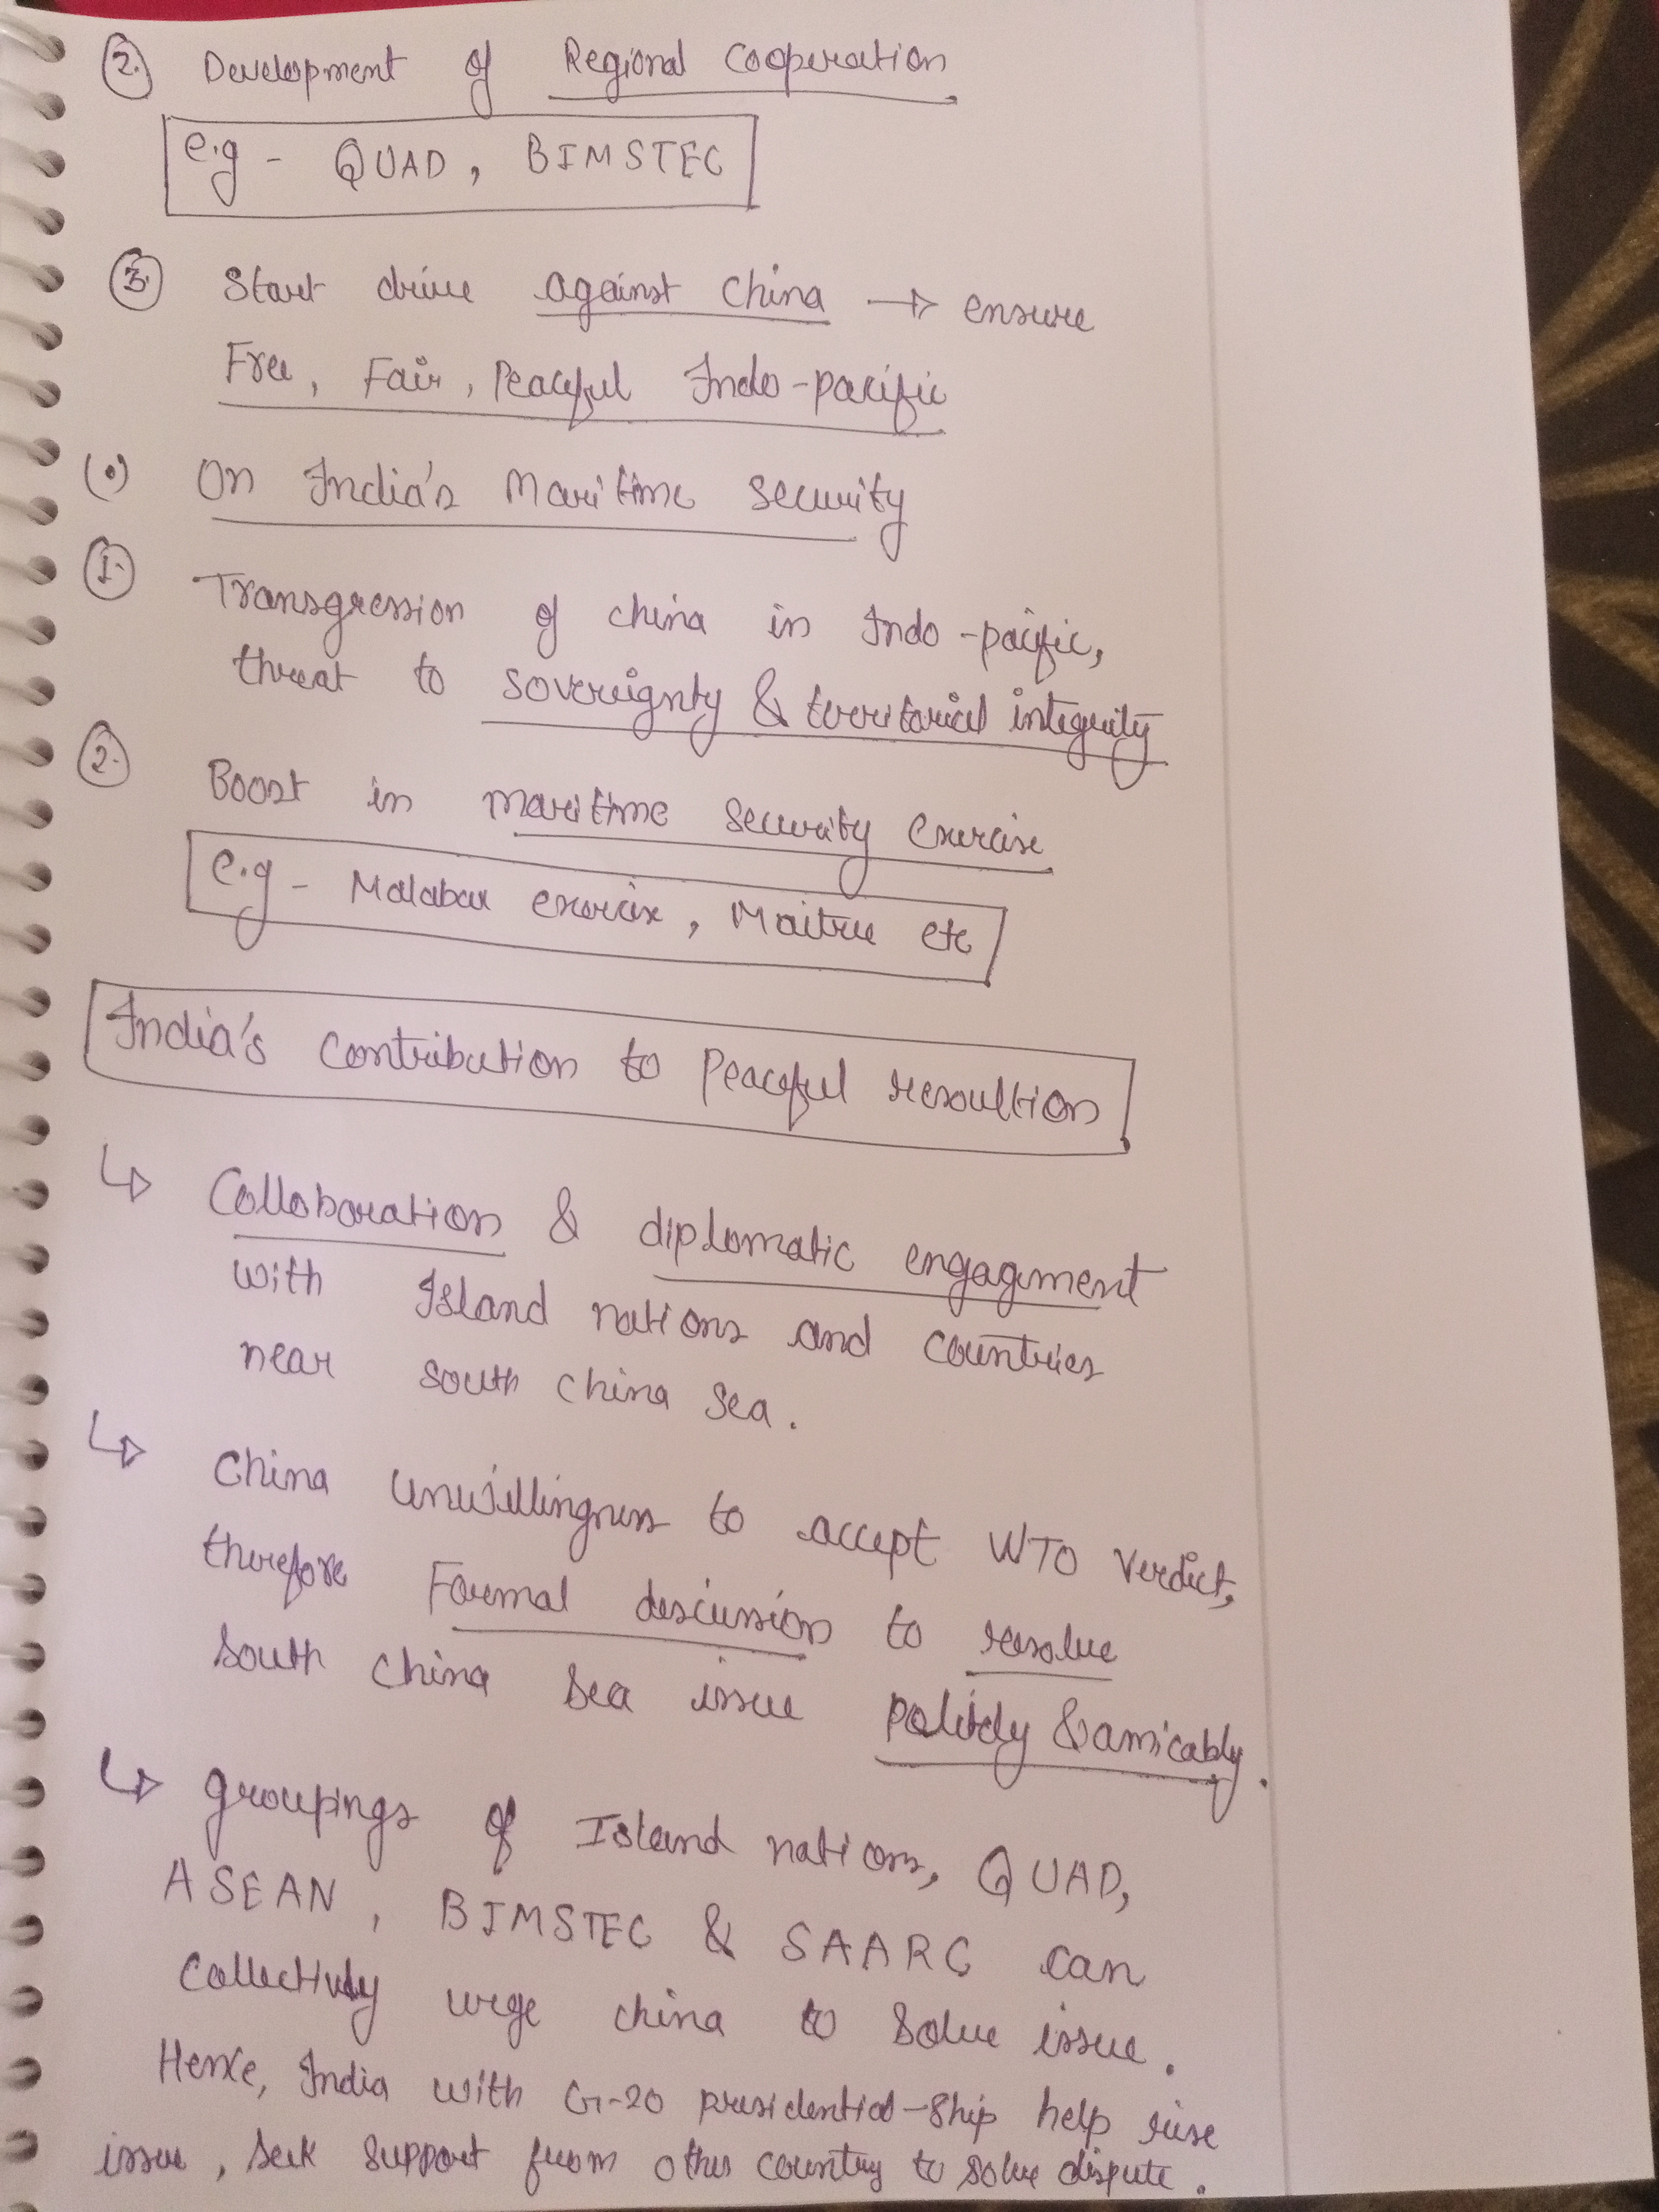 2. Development of Regional Cooperation
e.g - QUAD, BIMSTEC
3. Start drive against China → ensure
Free, Fair, Peaceful Indo-pacific
(•) On India's Maritime security
1. Transgression of china in Indo-pacific,
threat to sovereignty & territorial integrity
2. Boost in maritime security exercise
e.g - Malabar exercise, Maitree etc
India's contribution to Peaceful resoultion
↳ Collaboration & diplomatic engagement
with Island nations and countries
near south china sea.
↳ China unwillingness to accept WTO verdict,
therefore Formal discussion to resolve
south china sea issue politely & amicably.
↳ groupings of Island nations, QUAD,
ASEAN, BIMSTEC & SAARC can
collectively urge china to solve issue.
Hence, India with G-20 presidential-ship help rise
issue, seek support from other country to solve dispute.